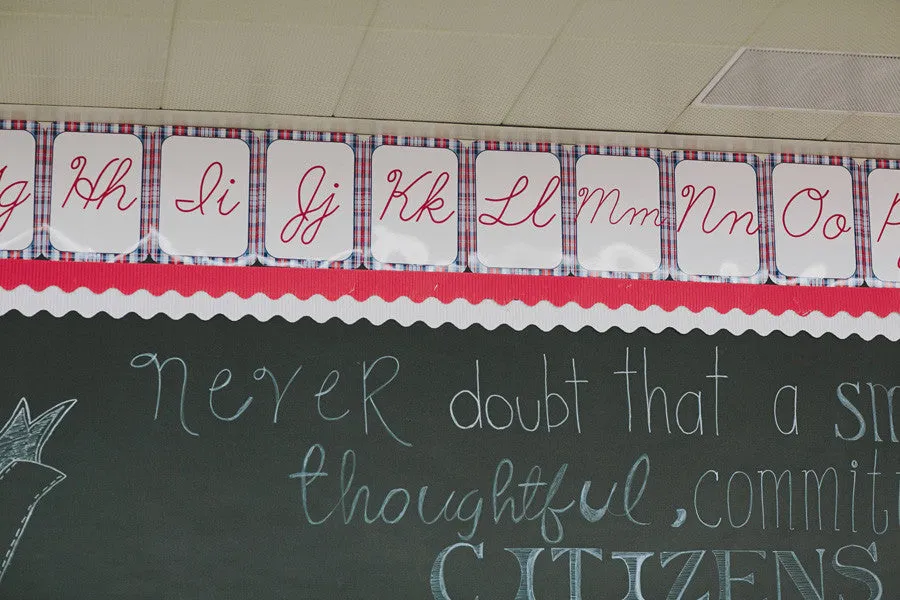 g Hh Ii Jj Kk Ll Mm Nn Oo P
never doubt that a sm
thoughtful, committ
CITIZENS